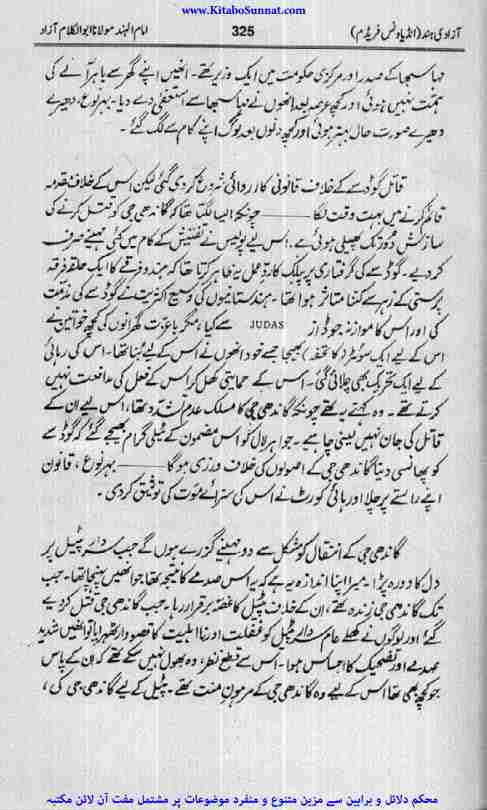 www.KitaboSunnat.com
آزادیِ ہند (انڈیا ونس فریڈم) 325 امام الہند مولانا ابوالکلام آزاد
مہا سبھا کے صدر اور مرکزی حکومت میں ایک وزیر تھے۔ انھیں اپنے گھر سے باہر آنے کی
ہمت نہیں ہوئی اور کچھ عرصہ بعد انھوں نے مہا سبھا سے استعفیٰ دے دیا۔ بہر نوع، دھیرے
دھیرے صورت حال بہتر ہوئی اور کچھ دنوں بعد لوگ اپنے کام سے لگ گئے۔
قاتل گوڈسے کے خلاف قانونی کارروائی شروع کردی گئی لیکن اس کے خلاف مقدمہ
قائم کرنے میں بہت وقت لگا ——— چونکہ ایسا لگتا تھا کہ گاندھی جی کو قتل کرنے کی
سازش دور تک پھیلی ہوئی ہے، اس لیے پولیس نے تفتیش کے کام میں کئی مہینے صرف
کردیے۔ گوڈسے کی گرفتاری پر پبلک کا ردِّ عمل یہ ظاہر کرتا تھا کہ ہندو فرقے کا ایک حلقہ فرقہ
پرستی کے زہر سے کتنا متاثر ہوا تھا۔ ہندستانیوں کی وسیع اکثریت نے گوڈسے کی مذمت
کی اور اس کا موازنہ جوڈاز JUDAS سے کیا، مگر باعزت گھرانوں کی کچھ خواتین نے
اس کے لیے ایک سویٹر (کا تحفہ) بھیجا جسے خود انھوں نے اس کے لیے بُنا تھا۔ اس کی رہائی
کے لیے ایک تحریک بھی چلائی گئی۔ اس کے حمایتی کھل کر اس کے فعل کی مدافعت نہیں
کرتے تھے۔ وہ کہتے یہ تھے چونکہ گاندھی جی کا مسلک عدم تشدد تھا، اس لیے ان کے
قاتل کی جان نہیں لینی چاہیے۔ جواہر لال کو اس مضمون کے ٹیلی گرام بھیجے گئے کہ گوڈسے
کو پھانسی دینا گاندھی جی کے اصولوں کی خلاف ورزی ہوگا ——— بہر نوع، قانون
اپنے راستے پر چلا اور ہائی کورٹ نے اس کی سزائے موت کی توثیق کردی۔
گاندھی جی کے انتقال کو مشکل سے دو مہینے گزرے ہوں گے جب سردار پٹیل پر
دل کا دورہ پڑا۔ میرا اپنا اندازہ یہ ہے کہ یہ اس صدمے کا نتیجہ تھا جو انھیں پہنچا تھا۔ جب
تک گاندھی جی زندہ تھے، ان کے خلاف پٹیل کا غصہ برقرار رہا۔ جب گاندھی جی قتل کردیے
گئے اور لوگوں نے کھلے عام سردار پٹیل کو غفلت اور نااہلیت کا قصوروار ٹھہرایا تو انھیں شدید
صدمے اور تضحیک کا احساس ہوا۔ اس سے قطع نظر، وہ بھول نہیں سکے تھے کہ ان کے پاس
جو کچھ بھی تھا اس کے لیے وہ گاندھی جی کے مرہونِ منت تھے۔ پٹیل کے لیے گاندھی جی کی،
محکم دلائل و براہین سے مزین متنوع و منفرد موضوعات پر مشتمل مفت آن لائن مکتبہ